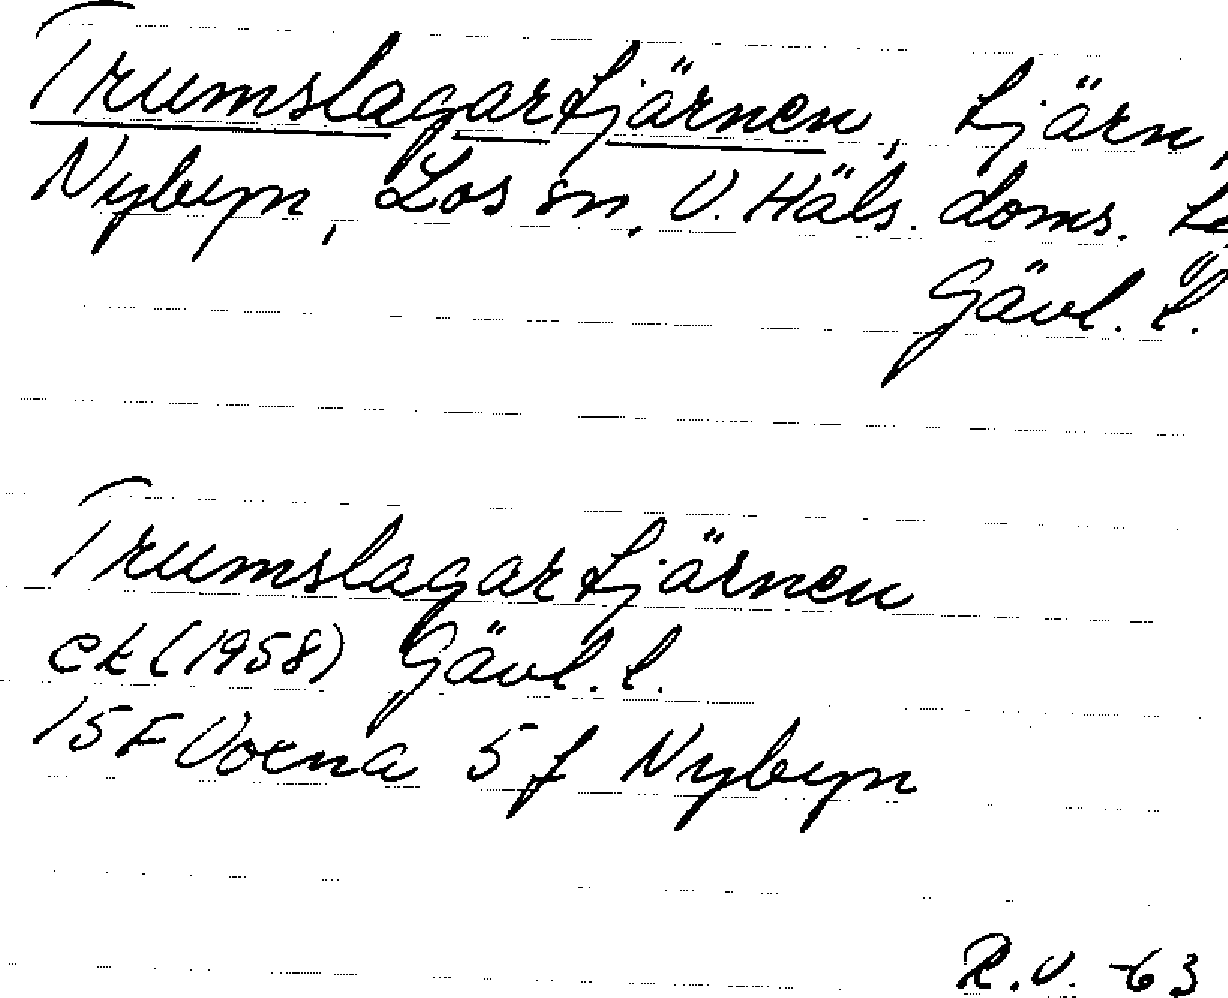 Trumslagartjärnen, tjärn,
Nybyn, Los sn, V. Häls. doms.
Gävl. l.
Trumslagartjärnen
ek (1958) Gävl. l.
15F Voxna 5 f Nybyn
R.V. -63